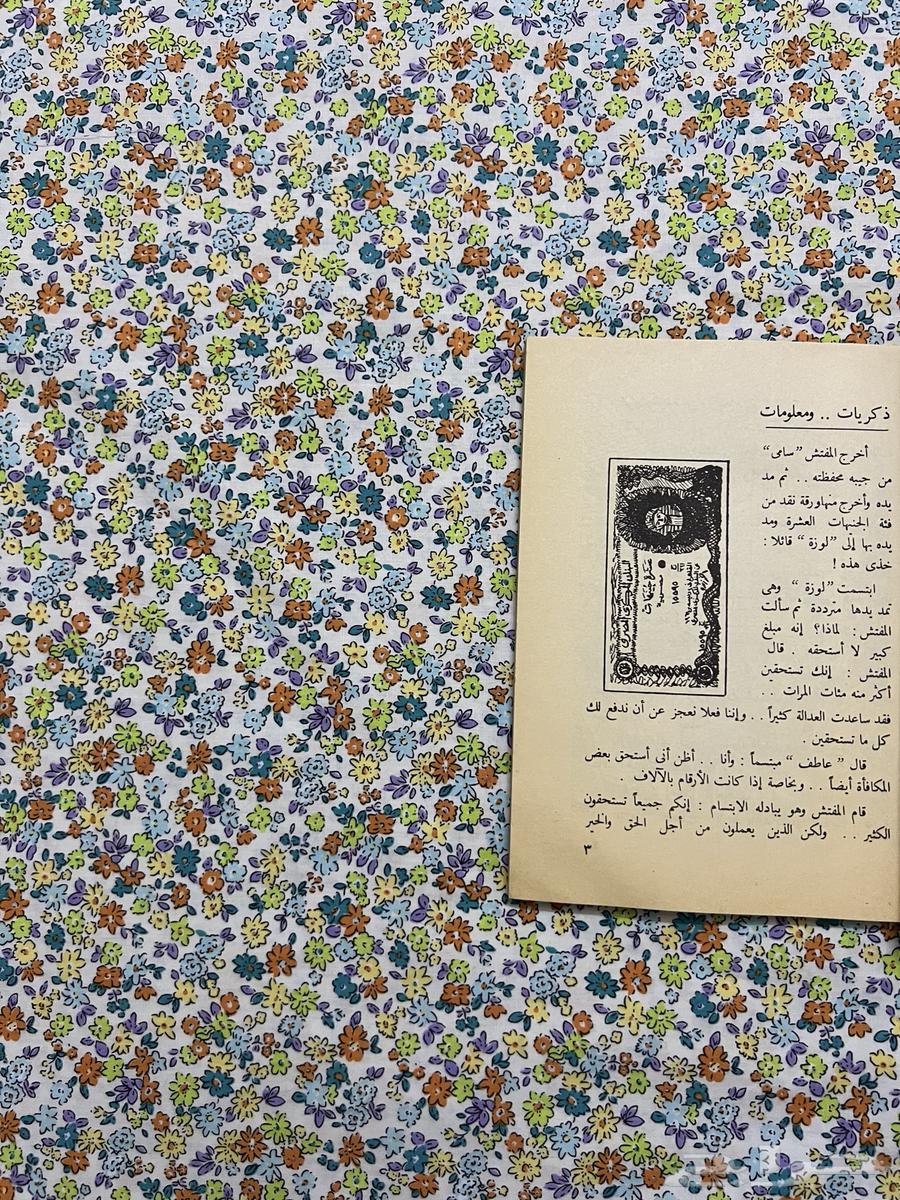 ذكريات .. ومعلومات
أخرج المفتش "سامى"
من جيبه محفظته .. ثم مد
يده وأخرج منها ورقة نقد من
فئة الجنيهات العشرة ومد
يده بها إلى "لوزة" قائلا :
خذى هذه !
ابتسمت "لوزة" وهى
تمد يدها مترددة ثم سألت
المفتش : لماذا؟ إنه مبلغ
كبير لا أستحقه . قال
المفتش : إنك تستحقين
أكثر منه مئات المرات ..
فقد ساعدت العدالة كثيراً .. وإننا فعلا نعجز عن أن ندفع لك
كل ما تستحقين .
قال "عاطف" مبتسماً : وأنا .. أظن أنى أستحق بعض
المكافأة أيضاً .. وبخاصة إذا كانت الأرقام بالآلاف .
قام المفتش وهو يبادله الابتسام : إنكم جميعاً تستحقون
الكثير .. ولكن الذين يعملون من أجل الحق والخير
٣
البنك المركزى المصرى
عشرة جنيهات